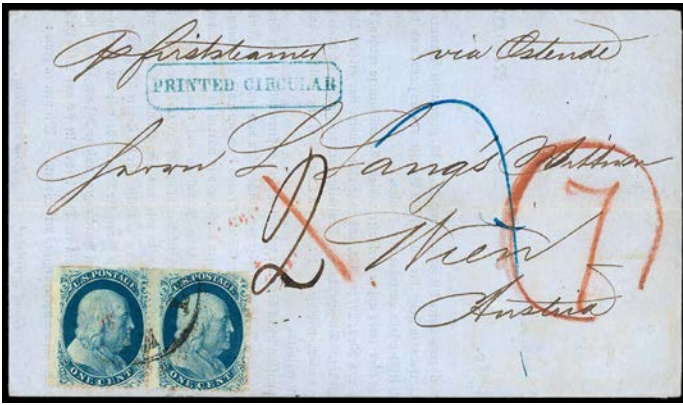 pr first steamer via Ostende
PRINTED CIRCULAR
Herrn L. Lang's Wittwe
2
7
Wien
Austria
U.S. POSTAGE U.S. POSTAGE
ONE CENT ONE CENT